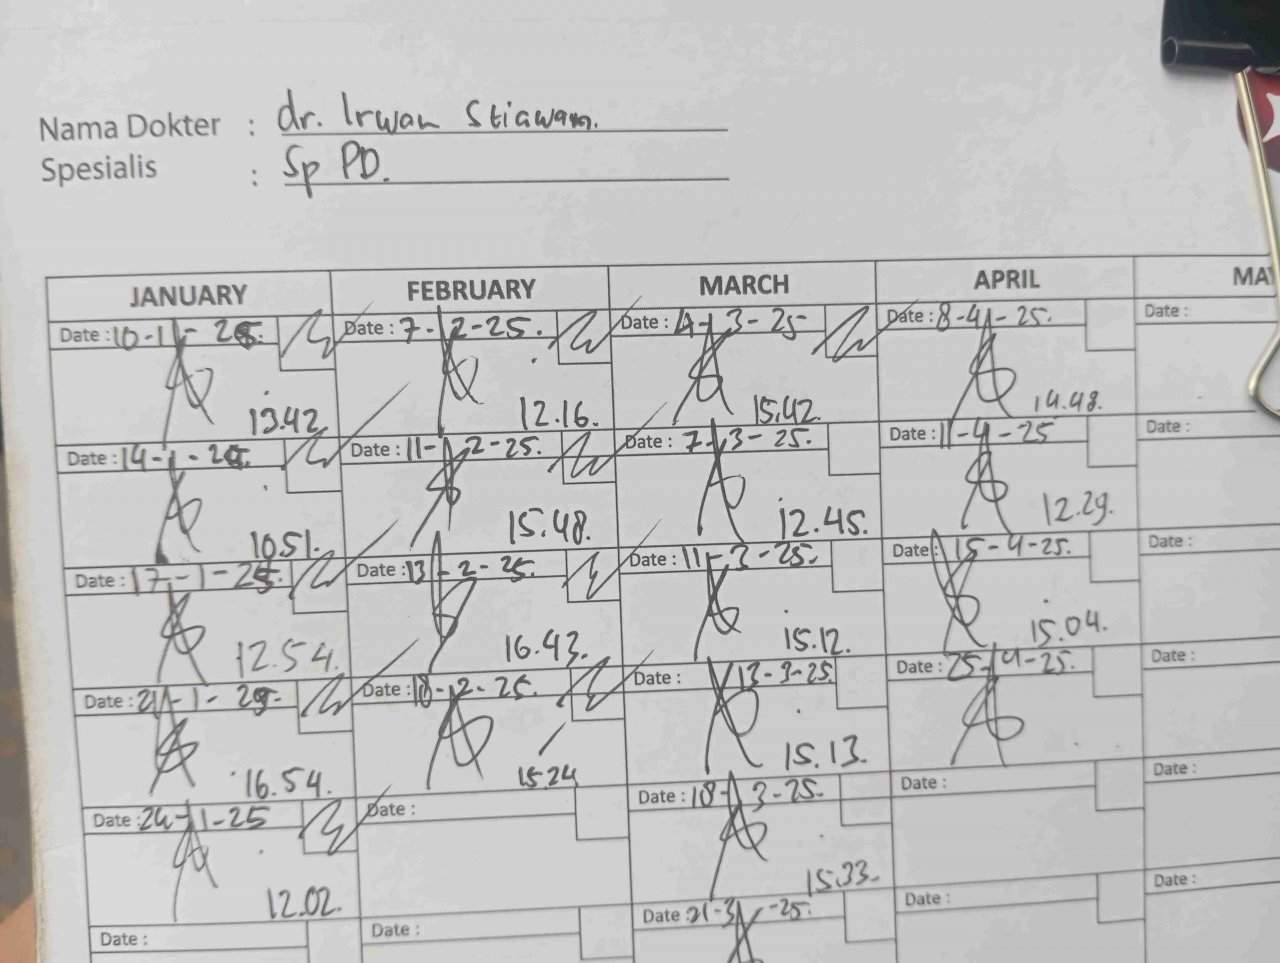 Nama Dokter : dr. Irwan Stiawan.
Spesialis : Sp PD.
JANUARY FEBRUARY MARCH APRIL
Date : 10-1-25. Date : 7-2-25. Date : 4-3-25 Date : 8-4-25. Date :
13.42 12.16. 15.42. 14.48.
Date : 14-1-25. Date : 11-2-25. Date : 7-3-25. Date : 11-4-25 Date :
10.51. 15.48. 12.45. 12.29.
Date : 17-1-25. Date : 13-2-25. Date : 11-3-25. Date : 15-4-25. Date :
12.54. 16.43. 15.12. 15.04.
Date : 21-1-25. Date : 18-2-25. Date : 13-3-25. Date : 25-4-25. Date :
16.54. 15.24 15.13.
Date : 24-1-25 Date : Date : 18-3-25. Date : Date :
12.02. 15.33.
Date : Date : Date : 21-3-25. Date : Date :